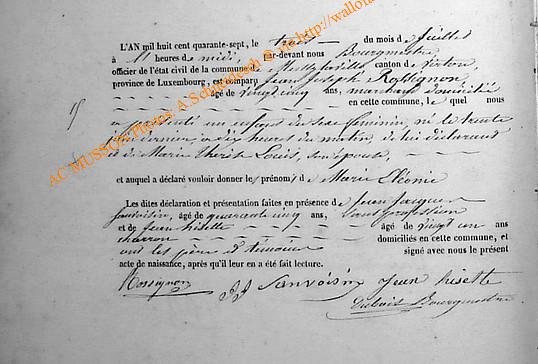 L'AN mil huit cent quarante-sept, le trois du mois de Juillet
à 11 heures de midi, par-devant nous Bourgmestre
officier de l'état civil de la commune de canton de Virton,
province de Luxembourg, est comparu Jean Joseph Rossignon
âgé de vingt cinq ans, marchand domicilié
en cette commune, le quel nous
a présenté un enfant du sexe féminin, né le trente
juin dernier, à dix heures du matin, de lui déclarant
et de Marie Therese Louis, son épouse,
et auquel a déclaré vouloir donner les prénoms de Marie Léonie
Les dites déclaration et présentation faites en présence de Jean Jacques
Sanvoisin, âgé de quarante cinq ans, sans profession
et de Jean Lisette âgé de vingt un ans
charron domiciliés en cette commune, et
ont les père et témoins signé avec nous le présent
acte de naissance, après qu'il leur en a été fait lecture.
Rossignon JJ Sanvoisin Jean Lisette
Dubois Bourgmestre
AC MUSSON Photos. A.Schmedeseh ® http://wallo